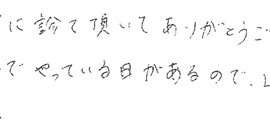 に診て頂いてありがとうご
でやっている日があるので、し